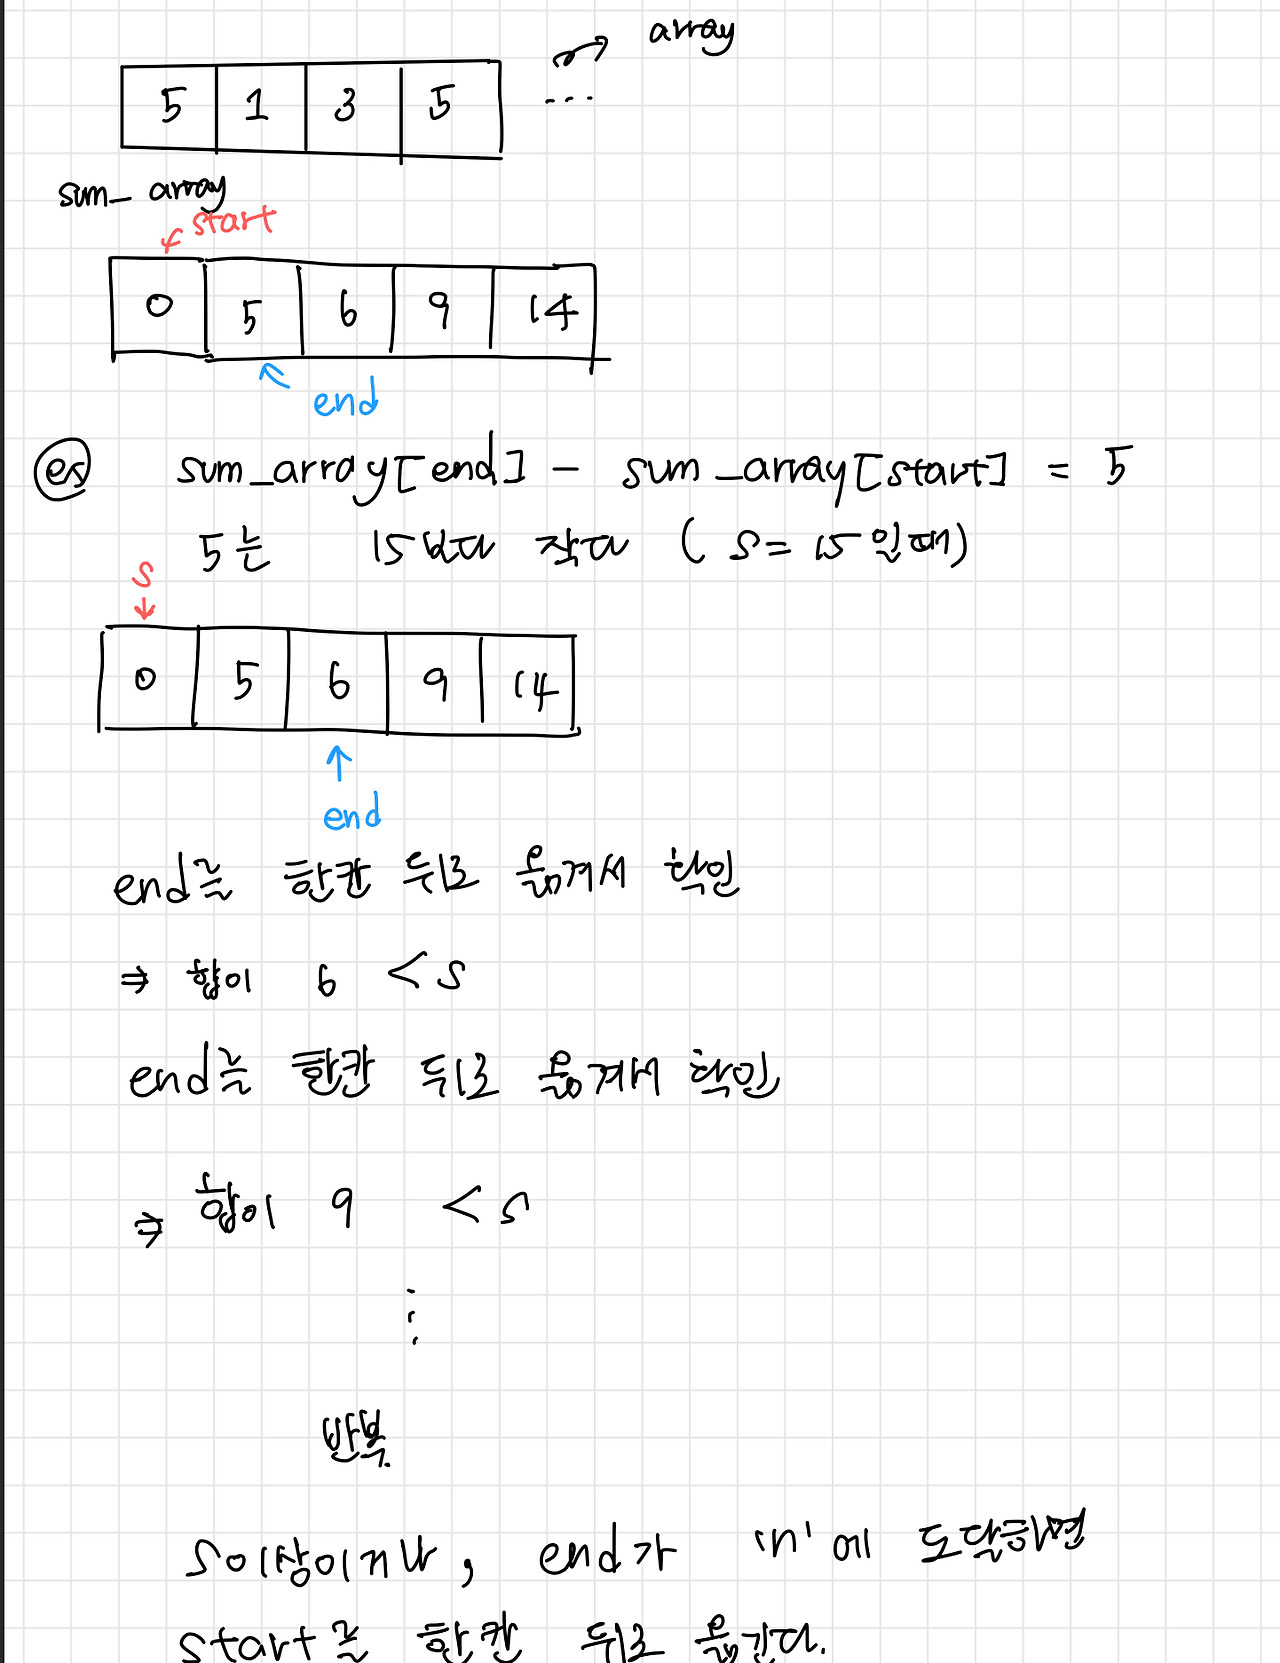 array
5 1 3 5 ...
sum_array
start
0 5 6 9 14
end
ex sum_array[end] - sum_array[start] = 5
5는 15보다 작다 ( S = 15일때)
S
0 5 6 9 14
end
end를 한칸 뒤로 옮겨서 확인
⇒ 합이 6 < S
end를 한칸 뒤로 옮겨서 확인
⇒ 합이 9 < S
⋮
반복.
S이상이거나, end가 'n'에 도달하면
start를 한칸 뒤로 옮긴다.